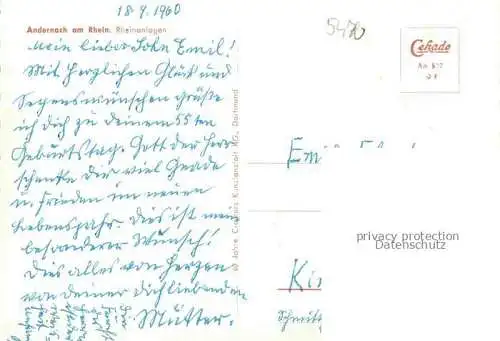 18.9.1960
Andernach am Rhein. Rheinanlagen
Mein lieber Sohn Emil!
Mit herzlichen Glück und
Segenswünschen grüße
ich dich zu deinem 55ten
Geburtstag. Gott der Herr
schenke dir viel Gnade
u. Frieden im neuen
Lebensjahr. Dies ist mein
besonderer Wunsch!
Dies alles von Herzen
von deiner dich liebenden
Mutter.
60 Jahre Cramers Kunstanstalt KG., Dortmund
5470
Cekade
An 877
Em
privacy protection
Datenschutz